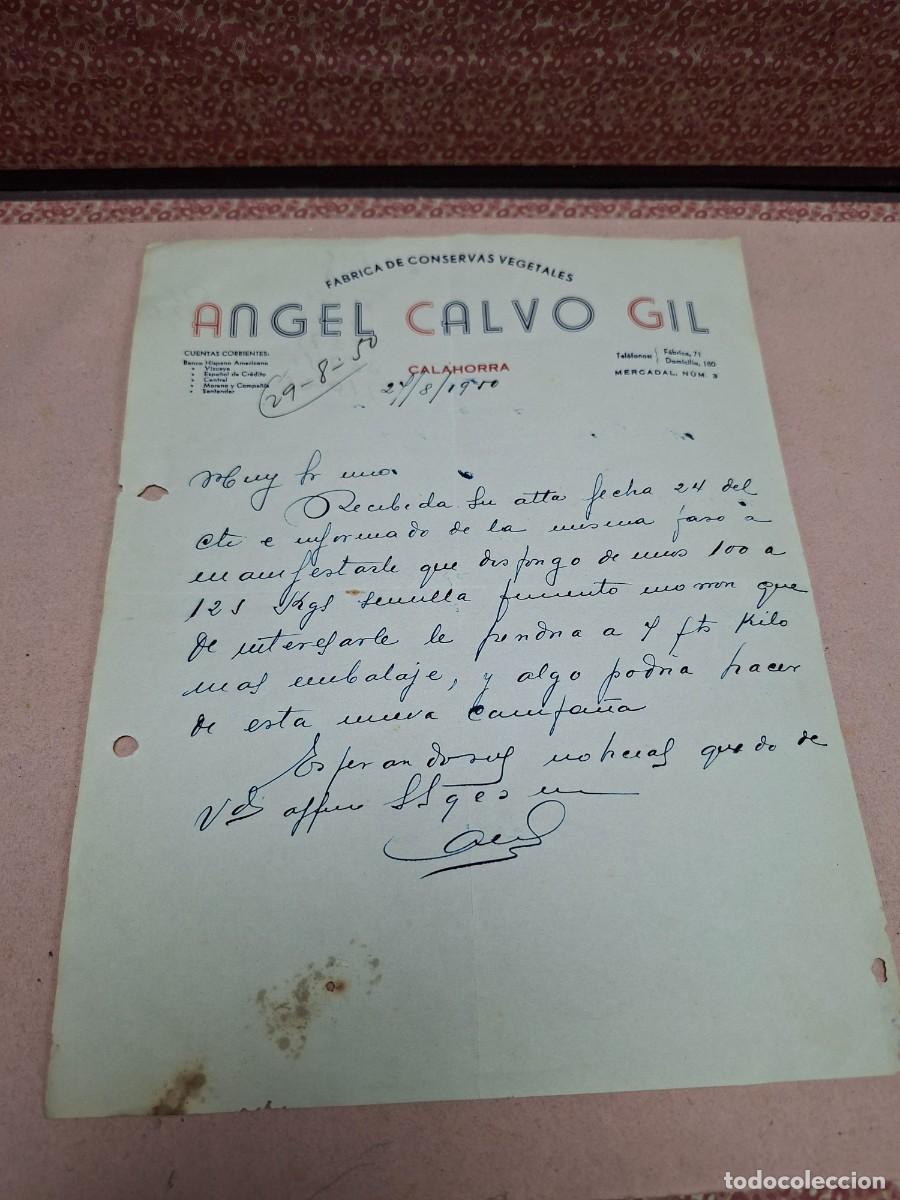 FABRICA DE CONSERVAS VEGETALES
ANGEL CALVO GIL
CUENTAS CORRIENTES:
Banco Hispano Americano
» Vizcaya
» Español de Crédito
» Central
» Moreno y Compañía
» Santander
29-8-50
CALAHORRA
27/8/1950
Teléfonos: Fábrica, 71
Domicilio, 180
MERCADAL, NÚM. 3
Muy Sr mio.
Recibida su atta fecha 24 del
cte e informado de la misma paso a
manifestarle que dispongo de unos 100 a
125 Kgs semilla pimiento morron que
de interesarle le pondria a 7 pts Kilo
mas embalaje, y algo podria hacer
de esta nueva campaña
Esperando sus noticias quedo de
Vd affmo S S q e s m
todocoleccion